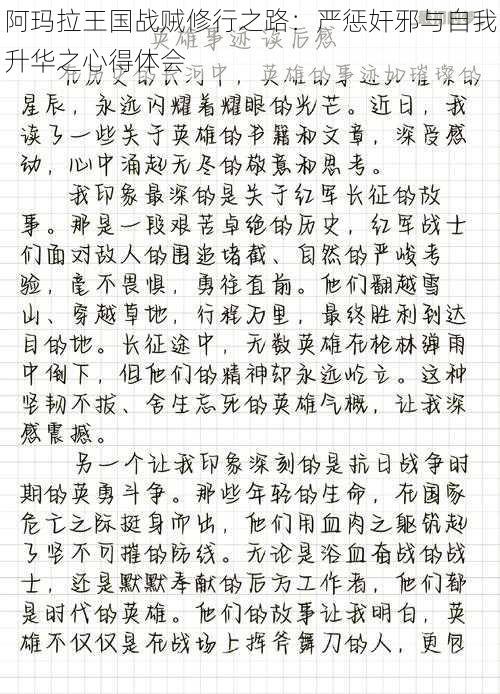 阿玛拉王国战贼修行之路：严惩奸邪与自我
升华之心得体会
英雄事迹读后感
在历史的长河中，英雄的事迹如璀璨的
星辰，永远闪耀着耀眼的光芒。近日，我
读了一些关于英雄的书籍和文章，深受感
动，心中涌起无尽的敬意和思考。
我印象最深的是关于红军长征的故
事。那是一段艰苦卓绝的历史，红军战士
们面对敌人的围追堵截、自然的严峻考
验，毫不畏惧，勇往直前。他们翻越雪
山、穿越草地，行程万里，最终胜利到达
目的地。长征途中，无数英雄在枪林弹雨
中倒下，但他们的精神却永远屹立。这种
坚韧不拔、舍生忘死的英雄气概，让我深
感震撼。
另一个让我印象深刻的是抗日战争时
期的英勇斗争。那些年轻的生命，在国家
危亡之际挺身而出，他们用血肉之躯筑起
了坚不可摧的防线。无论是浴血奋战的战
士，还是默默奉献的后方工作者，他们都
是时代的英雄。他们的故事让我明白，英
雄不仅仅是在战场上挥斧舞刀的人，更包